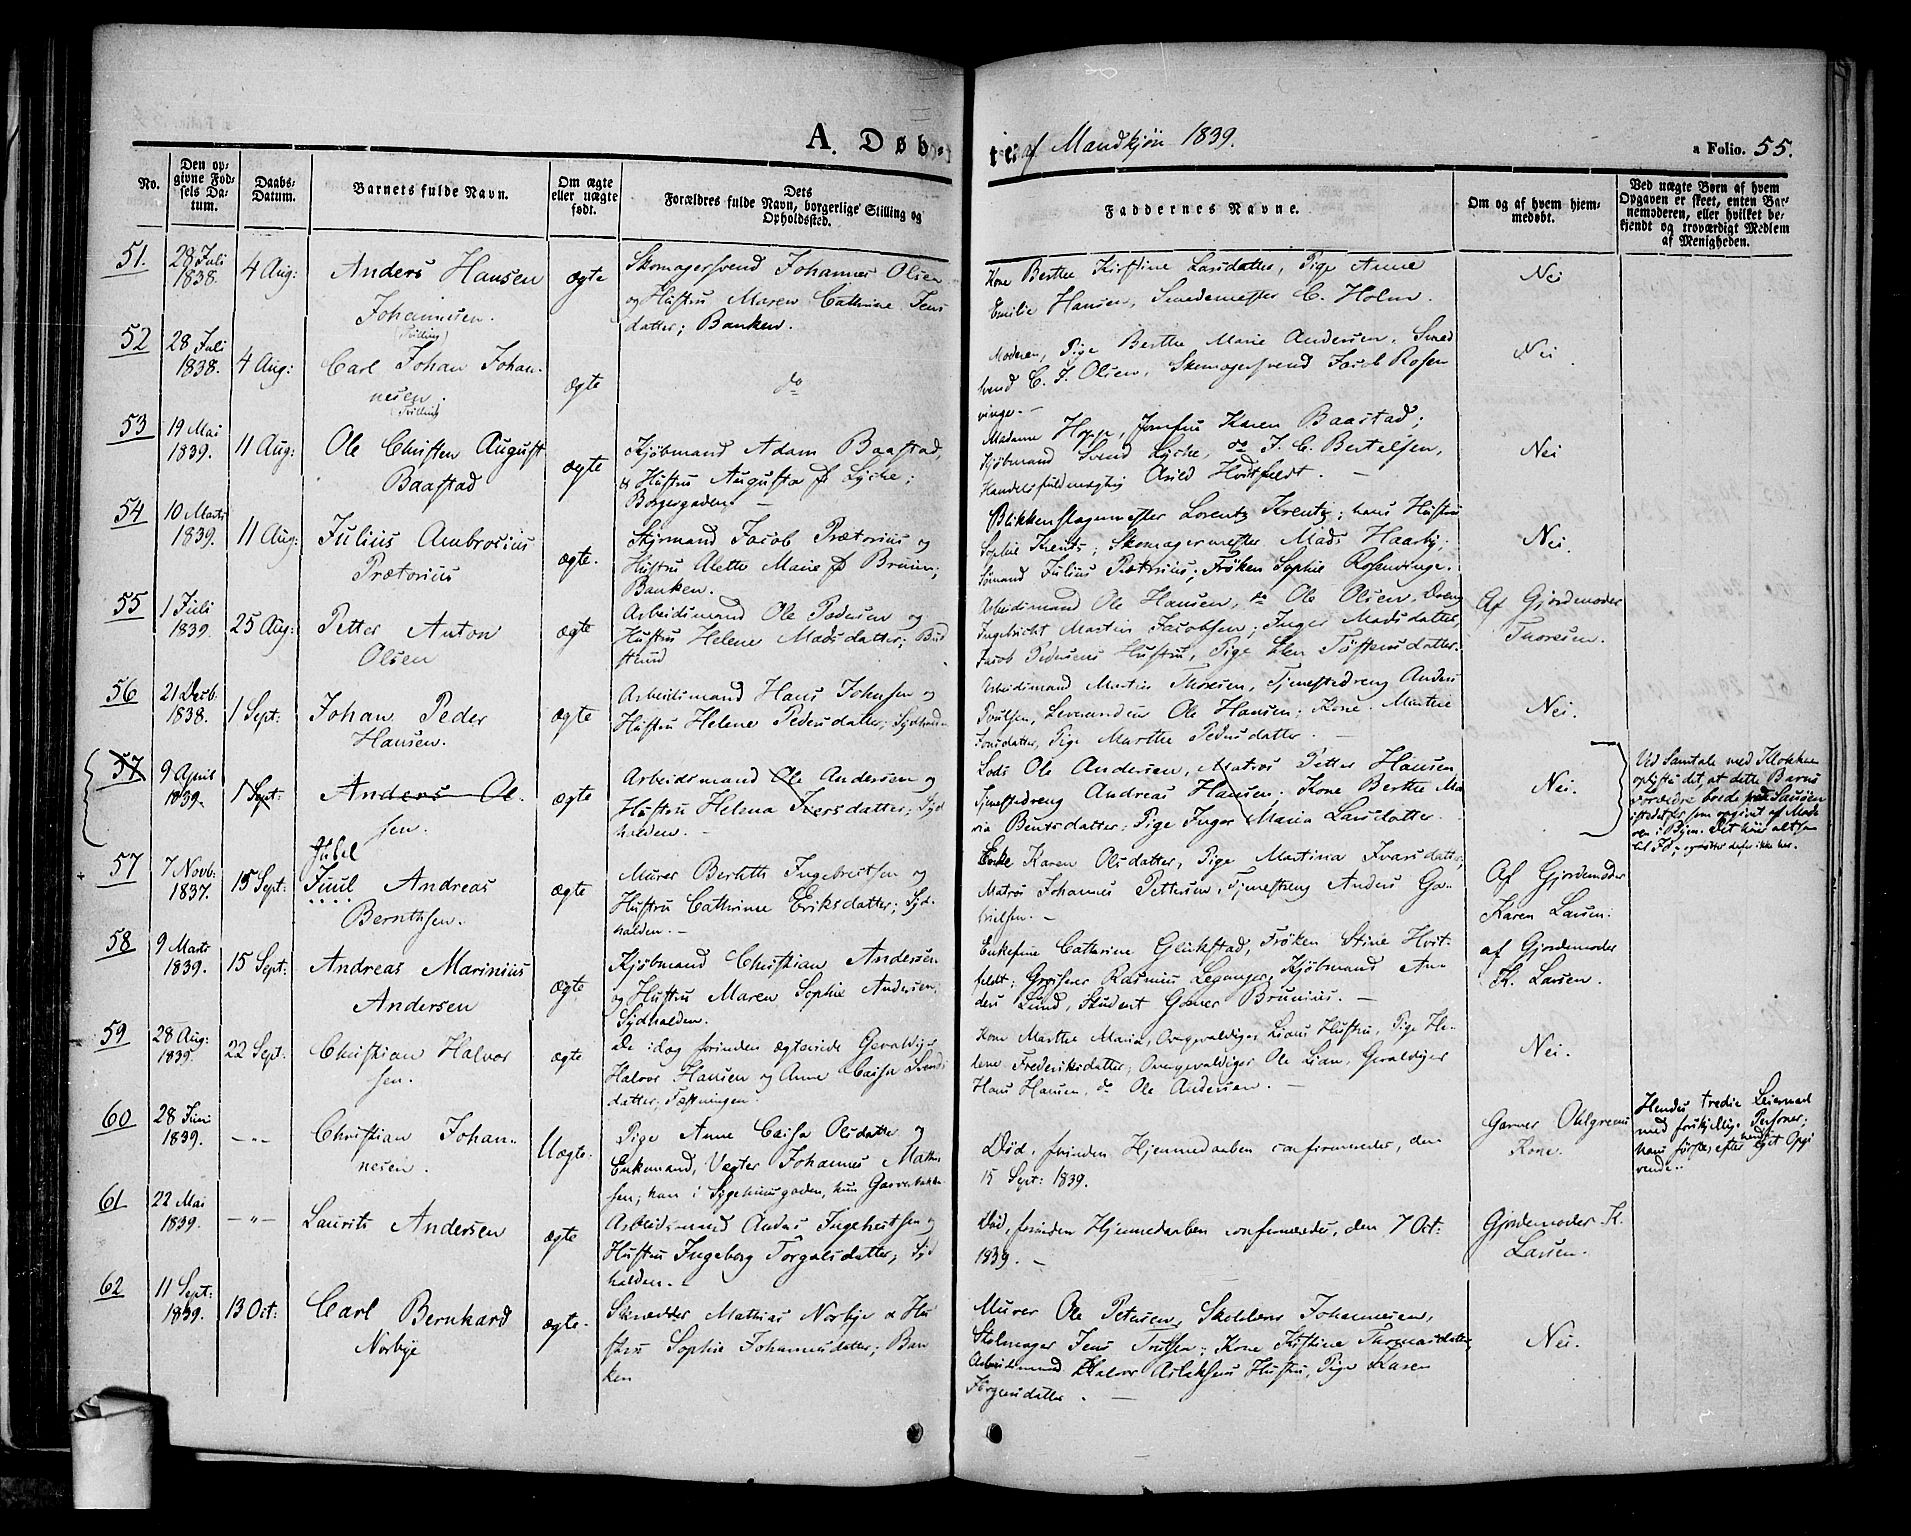 A. Døb-
te af Mandkjøn 1839.
a Folio. 55.
No.
Den op-
givne Fød-
sels Da-
tum.
Daabs-
Datum.
Barnets fulde Navn.
Om ægte
eller uægte
født.
Dets
Forældres fulde Navn, borgerlige Stilling og
Opholdssted.
Faddernes Navne.
Om og af hvem hjem-
medøbt.
Ved uægte Børn af hvem
Opgaven er skeet, enten Bar-
nemoderen, eller hvilket be-
kjendt og troværdigt Medlem
af Menigheden.
51.
28 Juli
1838.
4 Aug:
Anders Hansen
Johannesen.
(Tvilling)
ægte
Skomagersvend Johannes Olsen
og Hustru Maren Cathrine Jens
datter; Banken.
Kone Berthe Kirstine Larsdatter, Pige Anne
Emilie Hansen, Smedemester C. Holm.
Nei
52
28 Juli
1838.
4 Aug:
Carl Johan Johan-
nesen.
(Tvilling)
ægte
do
Moderen, Pige Berthe Marie Andersen, Smed
svend C. J. Olsen, Skomagersvend Jacob Rosen
vinge. —
Nei
53
19 Mai
1839.
11 Aug:
Ole Christen August
Baastad
ægte
Kjøbmand Adam Baastad,
& Hustru Augusta f. Lyche;
Borgergaden. —
Madame Hopp, Jomfru Karen Baastad;
Kjøbmand Svend Lyche, do J. C. Bertelsen,
Handelsfuldmægtig Arild Hvitfeldt. —
Nei
54
10 Marts
1839.
11 Aug:
Julius Ambrosius
Prætorius
ægte.
Styrmand Jacob Prætorius og
Hustru Alette Marie f. Bruun;
Banken.
Blikkenslagermester Lorentz Krentz; hans Hustru
Sophie Krentz; Skomagermester Mads Haarby;
Sømand Julius Prætorius; Frøken Sophie Rosenvinge.
Nei.
55
1 Juli
1839.
25 Aug:
Petter Anton
Olsen
ægte
Arbeidsmand Ole Pedersen og
Hustru Helene Madsdatter;
Arbeidsmand Ole Hansen, do Ole Olsen, Dreng
Ingebricht Martin Jacobsen; Inger Madsdatter,
Jacob Pedersens Hustru, Pige Elen Tostensdatter.
Af Gjordemoder
Thoresen.
56
21 Decb.
1838.
1 Sept:
Johan Peder
Hansen.
ægte
Arbeidsmand Hans Johnsen og
Hustru Helene Pedersdatter; Sydhalden
Arbeidsmand Martin Thoresen, Tjenestedreng Anders
Poulsen, Ole Hansen; Kone Marthe
Jonsdatter, Pige Marthe Pedersdatter. —
Nei.
57
9 April
1839.
1 Sept:
Anders Ol-
sen.
ægte
Arbeidsmand Ole Andersen og
Hustru Helena Iversdatter; Syd
halden. —
Lods Ole Andersen, Matros Petter Hansen
Tjenestedreng Andreas Hansen. Kone Berthe Ma
ria Bentsdatter; Pige Inger Maria Larsdatter.
Nei.
Ved Samtale med Klokken
oplystes det, at dette Barns
Forældre boede paa Sauøen
istedetfor som opgivet af Mode
ren i Byen. Det hører altsaa
til Id, og anføres derfor ikke her.
57
7 Novb.
1837.
15 Sept:
Jubel
Juul Andreas
Bernthsen.
ægte
Murer Bernth Ingebretsen og
Hustru Cathrine Eriksdatter; Syd-
halden. —
Enke Karen Olsdatter, Pige Martina Ivarsdatter,
Matros Johannes Pettersen, Tjenestdreng Anders Ga-
brielsen. —
Af Gjordemoder
Karen Larsen.
58
9 Marts
1839.
15 Sept:
Andreas Marinius
Andersen
ægte
Kjøbmand Christian Andersen
og Hustru Maren Sophie Andersen;
Sydhalden.
Enkefrue Catharine Glückstad, Frøken Stine Hvit-
feldt; Grosserer Rasmus Leganger, Kjøbmand An-
ders Lund, Student Gomer Brunius. —
af Gjordemoder
K. Larsen.
59
28 Aug:
1839.
22 Sept:
Christian Halvor
sen.
ægte
De idag forinden ægteviede Gevaldiger
Halvor Hansen og Anne Caisa Svends
datter; Fæstningen.
Kone Marthe Maria, Overgevaldiger Lians Hustru, Pige He-
lene Frederiksdatter, Overgevaldiger Ole Lian, Gevaldiger
Hans Hansen, do Ole Andersen. —
Nei.
60
28 Juni
1839.
— " —
Christian Johan-
nesen.
Uægte.
Pige Anne Caisa Olsdatter og
Enkemand, Vægter Johannes Mathi
sen; han i Sygehuusgaden, hun Garverbakken
Død, forinden Hjemmedaaben confirmeredes, den
15 Sept: 1839.
Garver Ohlgreens
Kone.
Hendes tredie Leiermaal
med forskjellige Personer;
hans første, efter hendes eget Opgi
vende.
61
22 Mai
1839.
— " —
Laurits Andersen
ægte
Arbeidsmand Anders Ingebretsen og
Hustru Ingeborg Torgalsdatter; Syd
halden. —
Død, forinden Hjemmedaaben confirmeredes, den 7 Oct:
1839. —
Gjordemoder K.
Larsen.
62
11 Sept:
1839.
13 Oct:
Carl Bernhard
Norbye
ægte.
Skrædder Mathias Norbye & Hu
stru Sophie Johannesdatter; Ban
ken
Murer Ole Petersen, Johannesen,
Stolmager Jens; Kone Kirstine Thomasdatter,
Arbeidsmand Halvor Aslaksens Hustru, Pige Karen
Jørgensdatter. —
Nei.